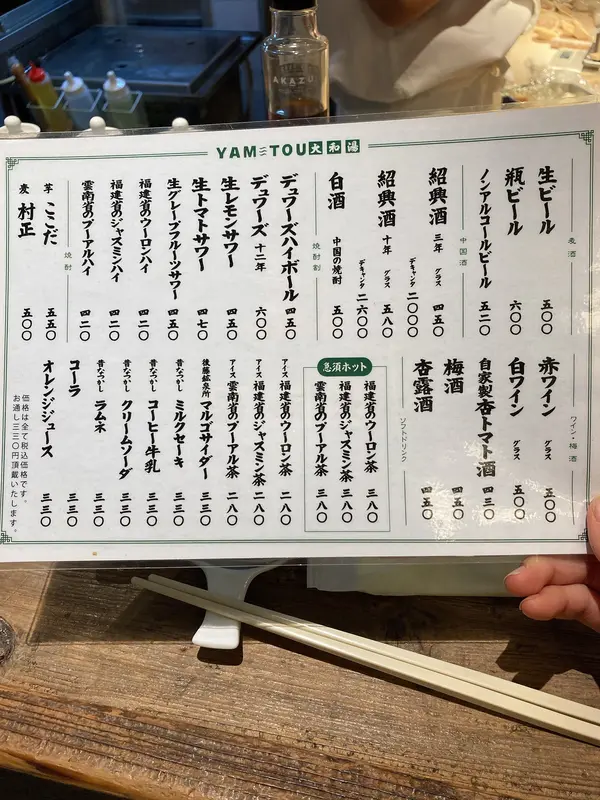 AKAZU
YAM TOU大和湯
麦酒
生ビール 五〇〇
瓶ビール 六〇〇
ノンアルコールビール 五二〇
中国酒
紹興酒 三年 グラス 四五〇
デキャンタ 二〇〇〇
紹興酒 十年 グラス 五八〇
デキャンタ 二六〇〇
白酒 中国の焼酎 五〇〇
焼酎割
デュワーズハイボール 四五〇
デュワーズ 十二年 六〇〇
生レモンサワー 四五〇
生トマトサワー 四七〇
生グレープフルーツサワー 四五〇
福建省のウーロンハイ 四二〇
福建省のジャスミンハイ 四二〇
雲南省のプーアルハイ 四二〇
焼酎
芋 ここだ 五五〇
麦 村正 五〇〇
ワイン・梅酒
赤ワイン グラス 五〇〇
白ワイン グラス 五〇〇
自家製杏トマト酒 四三〇
梅酒 四五〇
杏露酒 四五〇
ソフトドリンク
急須ホット
福建省のウーロン茶 三八〇
福建省のジャスミン茶 三八〇
雲南省のプーアル茶 三八〇
アイス 福建省のウーロン茶 二八〇
アイス 福建省のジャスミン茶 二八〇
アイス 雲南省のプーアル茶 二八〇
後藤鉱泉所 マルゴサイダー 三三〇
昔なつかし ミルクセーキ 三三〇
昔なつかし コーヒー牛乳 三三〇
昔なつかし クリームソーダ 三三〇
昔なつかし ラムネ 三三〇
コーラ 三三〇
オレンジジュース 三三〇
価格は全て税込価格です。
お通し三三〇円頂戴いたします。